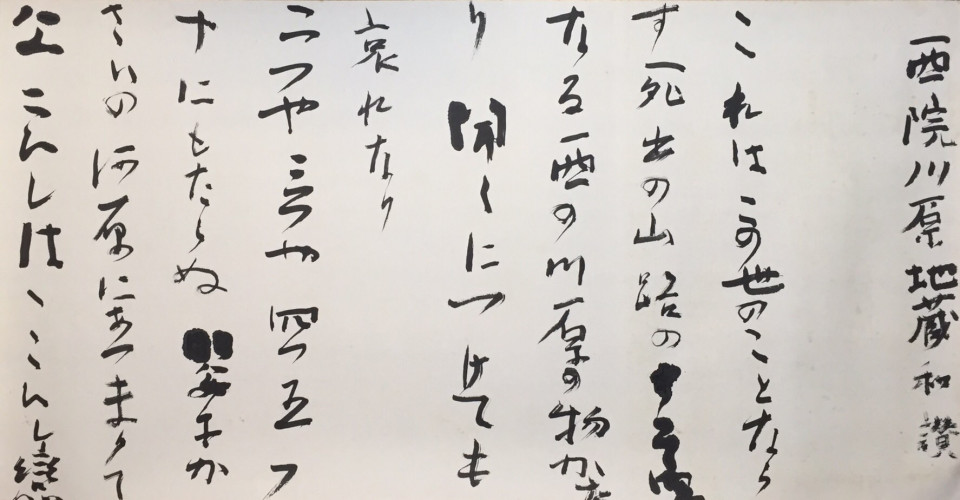 西院川原地蔵和讃
これはこの世のことなら
す死出の山路のすそ野
なる西の川原の物かた
り聞くにつけても
哀れなり
二つや三つや四つ五つ
十にもたらぬ嬰子か
さいの河原にあつまりて
こひしはゝこひし